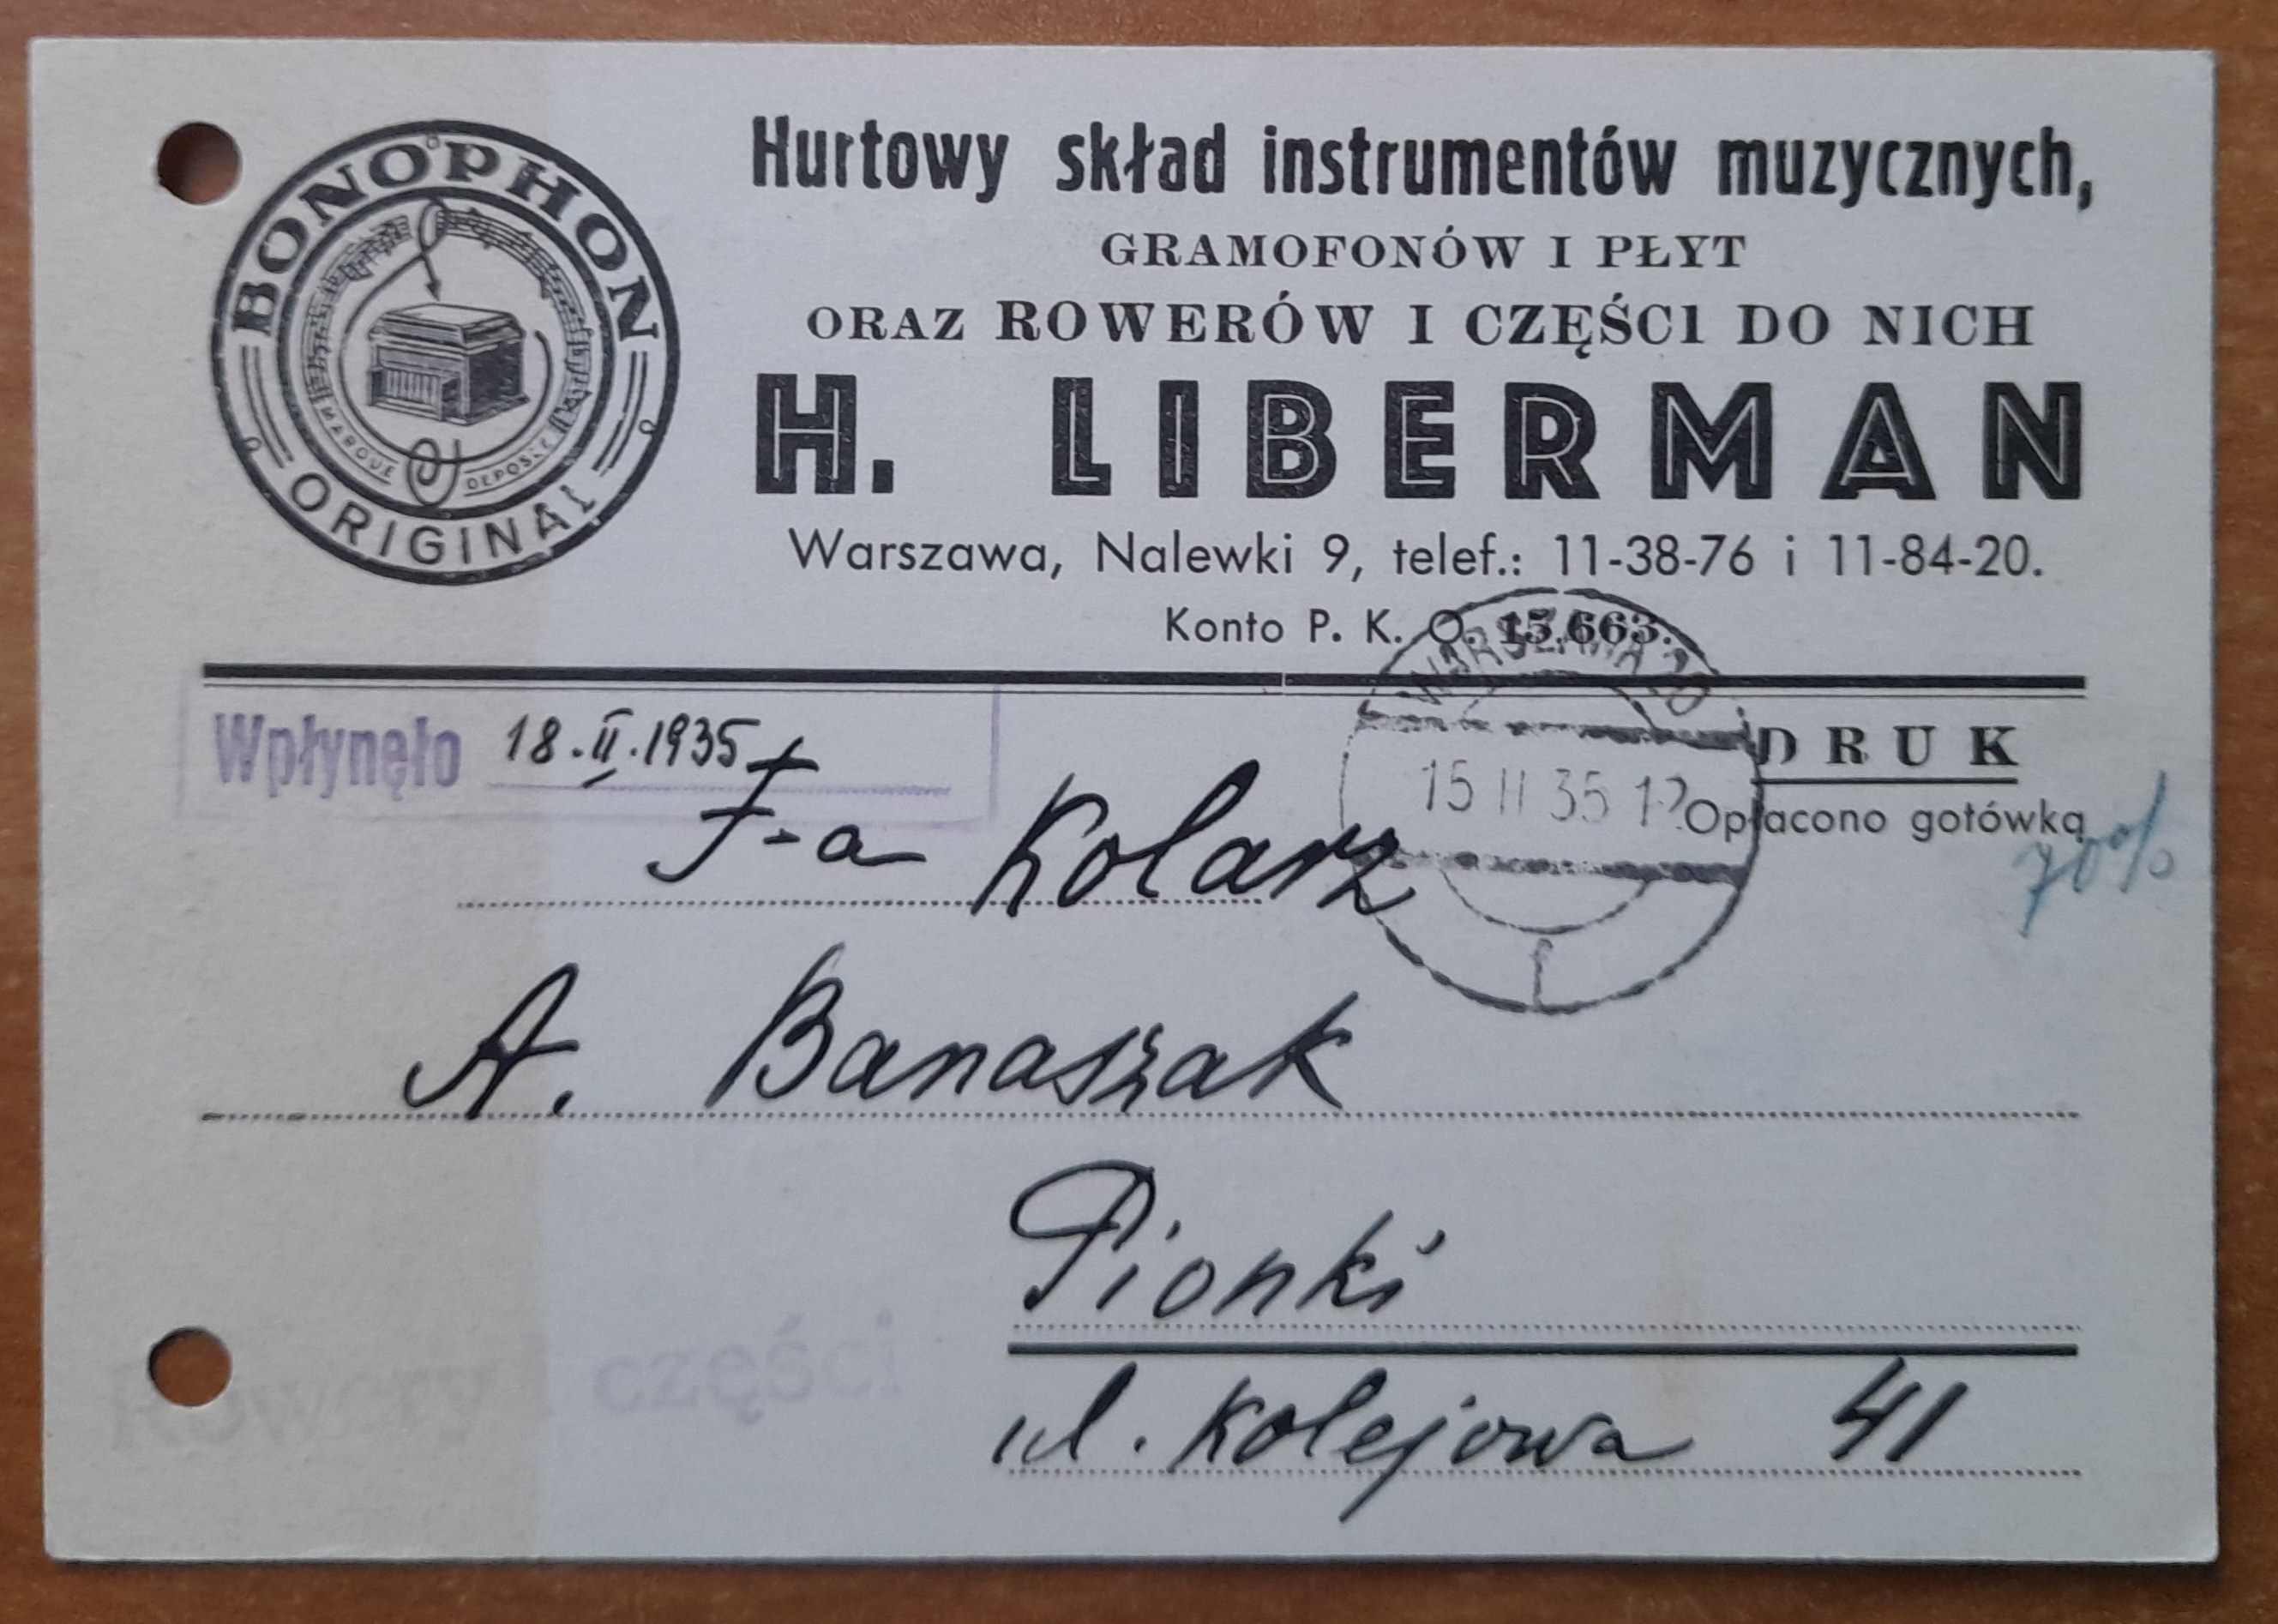 BONOPHON
MARQUE DEPOSÉE
ORIGINAL
Hurtowy skład instrumentów muzycznych,
GRAMOFONÓW I PŁYT
ORAZ ROWERÓW I CZĘŚCI DO NICH
H. LIBERMAN
Warszawa, Nalewki 9, telef.: 11-38-76 i 11-84-20.
Konto P. K. O. 15.663.
WARSZAWA
15 II 35 12
Wpłynęło 18.II.1935
DRUK
Opłacono gotówką
70%
F-a Kolarz
A. Banaszak
Pionki
ul. Kolejowa 41
Rowery części